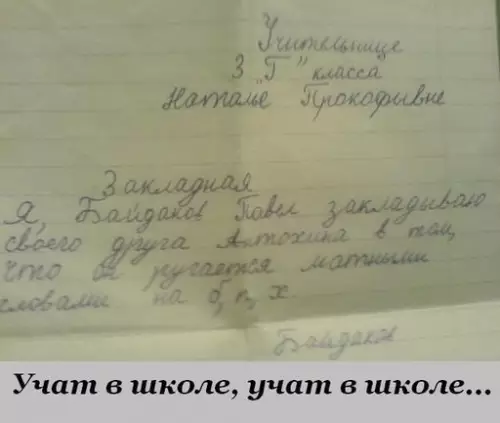 Учительнице
3 „Г" класса
Наталье Прокофивне
Закладная
Я, Байдаков Павел закладываю
своего друга Антохина в том,
что он ругается матными
словами на б, п, х.
Байдаков
Учат в школе, учат в школе...